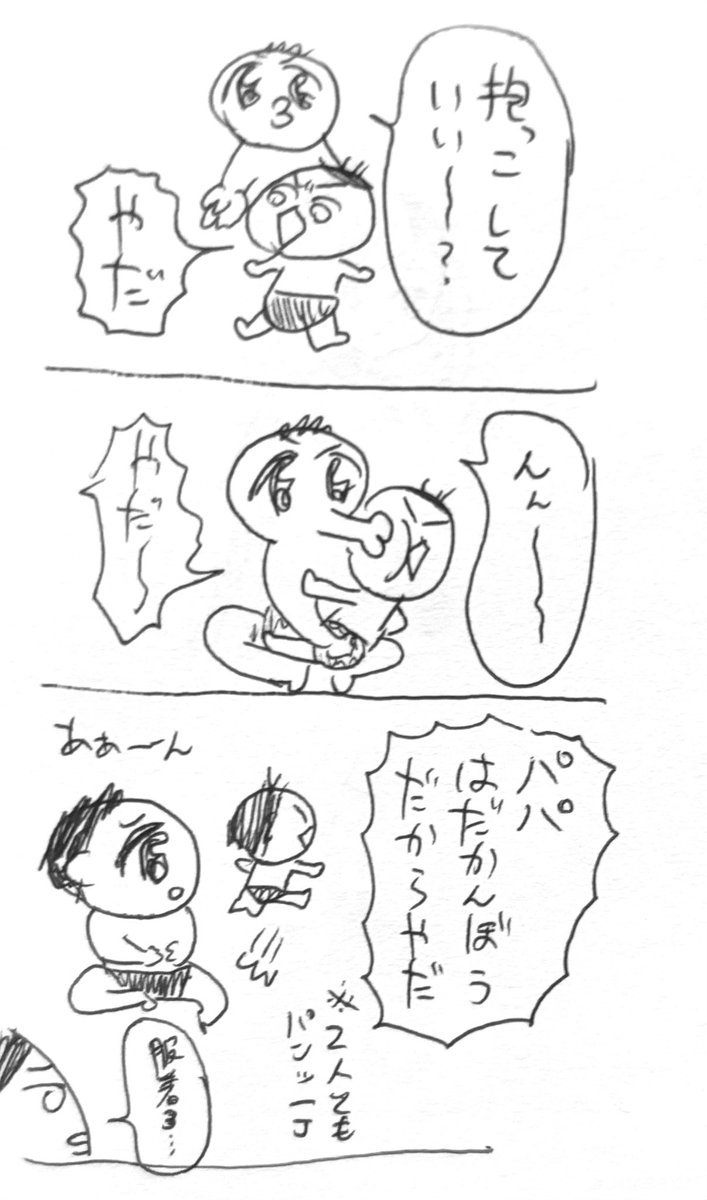 抱っこして
いい〜〜?
やだ
んん〜〜
やだ〜
パパ
はだかんぼう
だからやだ
あぁーん
※2人とも
パンツ一丁
服着ろ…